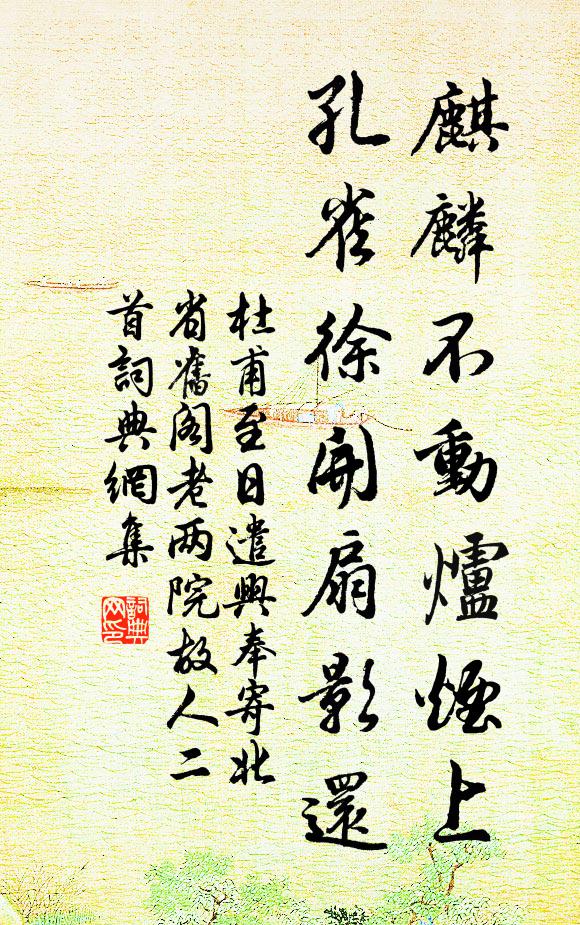 麒麟不動爐煙上
孔雀徐開扇影還
杜甫至日遣興奉寄北
省舊閣老两院故人二
首詞典網集
詞典网印